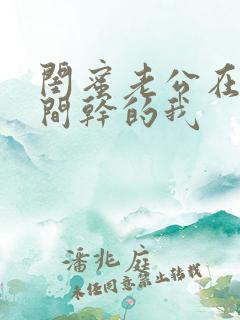 閨蜜老公在
間幹的我
潘兆庭
未经同意禁止转载